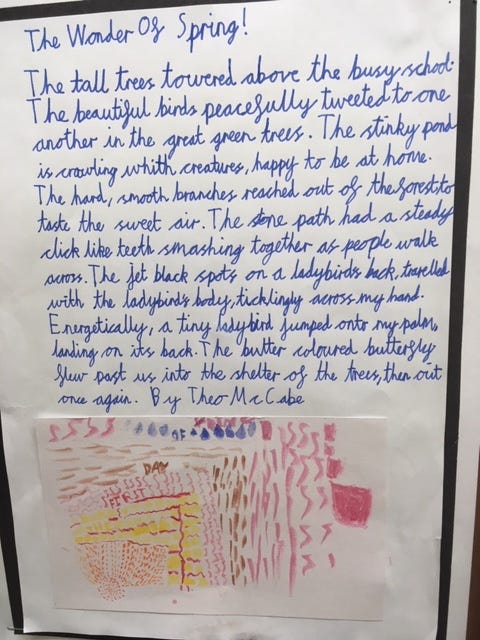 The Wonder Of Spring!
The tall trees towered above the busy school.
The beautiful birds peacefully tweeted to one
another in the great green trees. The stinky pond
is crawling whith creatures, happy to be at home.
The hard, smooth branches reached out of the forest, to
taste the sweet air. The stone path had a steady
click like teeth smashing together as people walk
across. The jet black spots on a ladybirds back, travelled
with the ladybirds body, ticklingly across my hand.
Energetically, a tiny ladybird jumped onto my palm,
landing on its back. The butter coloured butterfly
flew past us into the shelter of the trees, then out
once again. By Theo McCabe
OF
DAY
FIRST